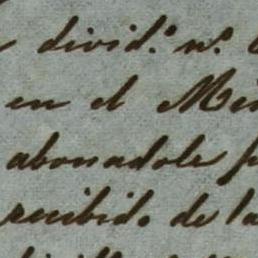 divid.º n.º
en el
abonadole
recibido de la